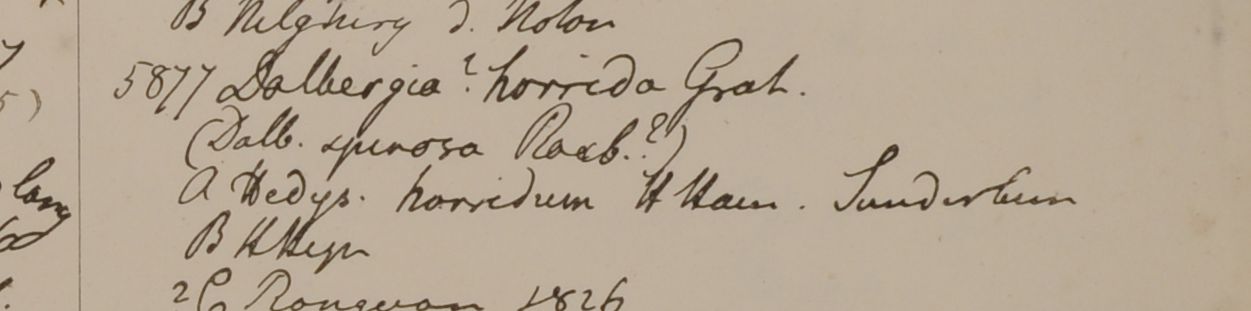 B Nelghery d. Noton
5877 Dalbergia? horrida Grah.
(Dalb. spinosa Roxb.?)
A Hedys. horridum H Ham. Sunderbun
B H Heyn
?C Rangoon 1826